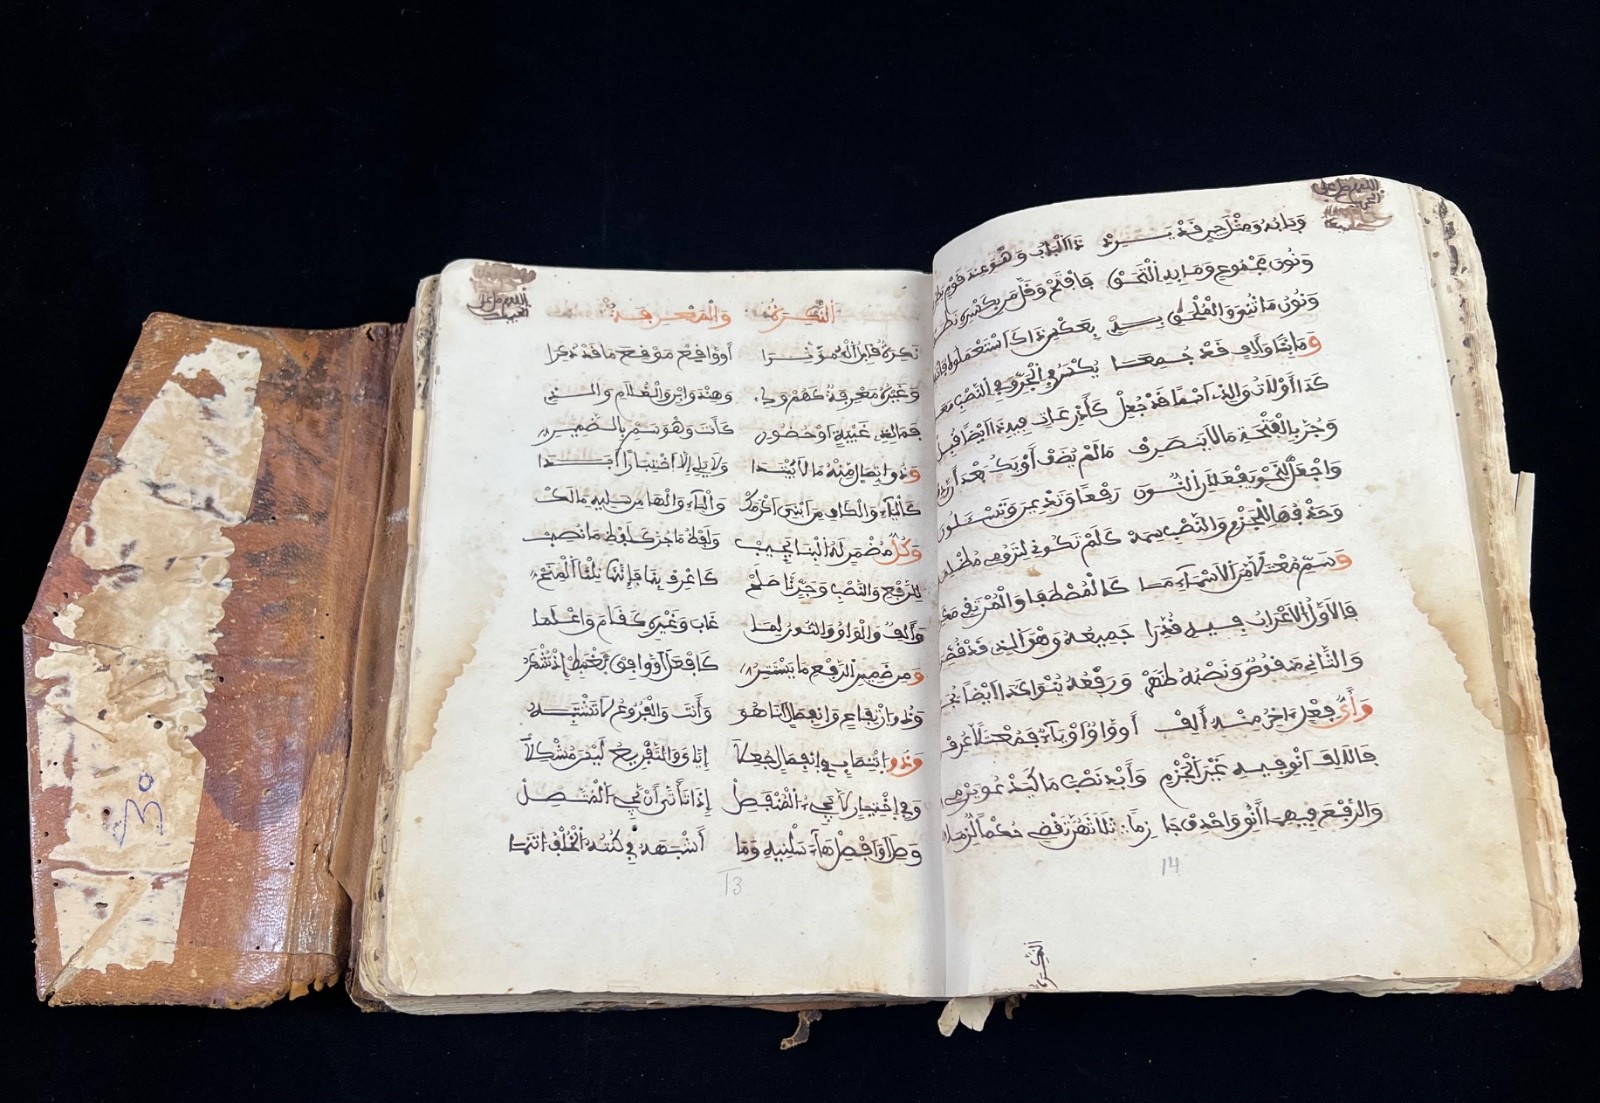 اللهم صل على الحبيب
وبابه ومثل حين قد يرد ذا الباب وهو عند قوم
ونون مجموع وما به التحق فافتح وقل من بكسره نطق
ونون ما ثني والملحق به بعكس ذاك استعملوه فانتبه
وما بتا وألف قد جمعا يكسر في الجر وفي النصب معا
كذا أولات والذي اسما قد جعل كأذرعات فيه ذا أيضا قبل
وجر بالفتحة ما لا ينصرف ما لم يضف أو يك بعد أل
واجعل لنحو يفعلان النون رفعا وتدعين وتسئلون
وحذفها للجزم والنصب سمه كلم تكوني لترومي مظلمه
وسم معتلا من الأسماء ما كالمصطفى والمرتقي
فالأول الإعراب فيه قدرا جميعه وهو الذي قد قصر
والثاني منقوص ونصبه ظهر ورفعه ينوى كذا أيضا يجر
وأي فعل ءاخر منه ألف أو واو أو ياء فمعتلا عرف
فالالف انو فيه غير الجزم وأبد نصب ما كيدعو يرمي
والرفع فيهما انو واحذف جازما ثلاثهن تقض حكما لازما
14
النكرة
اللهم صل على الحبيب
النكرة والمعرفة
نكرة قابل أل مؤثرا أو واقع موقع ما قد ذكرا
وغيره معرفة كهم وذي وهند وابن والغلام والذي
فما لذي غيبة أو حضور كأنت وهو سم بالضمير
وذو اتصال منه ما لا يبتدا ولا يلي إلا اختيارا أبدا
كالياء والكاف من ابني أكرمك والياء والها من سليه ما ملك
وكل مضمر له البنا يجب ولفظ ما جر كلفظ ما نصب
للرفع والنصب وجر نا صلح كاعرف بنا فإننا نلنا المنح
وألف والواو والنون لما غاب وغيره كقاما واعلما
ومن ضمير الرفع ما يستتر كافعل أوافق نغتبط إذ تشكر
وذو ارتفاع وانفصال أنا هو وأنت والفروع لا تشتبه
وذو انتصاب في انفصال جعلا إياي والتفريع ليس مشكلا
وفي اختيار لا يجيء المنفصل إذا تأتى أن يجي المتصل
وصل أو افصل هاء سلنيه وما أشبهه في كنته الخلف انتمى
13
30